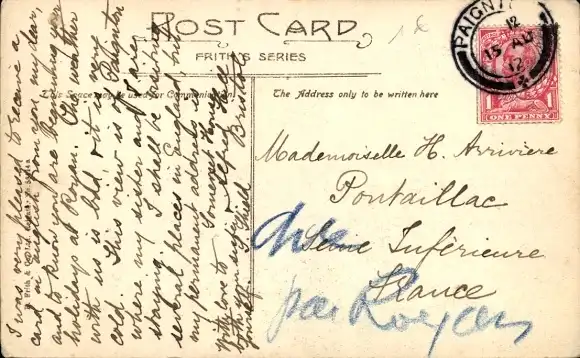 POST CARD
FRITH'S SERIES
This Space may be used for Communication.
The Address only to be written here
PAIGNT
12
15 AU
12
ONE PENNY
Mademoiselle H. Arrivière
Pontaillac
Seine Inferieure
France
par Royan
I was very pleased to receive a
card in English from you my dear,
and to know you are spending your
holidays at Royan. Our weather
with us is bld. out is very
cold. This view is of Paignton
where my sister and I are
staying. I shall be visiting
several places in England but
my permanent address is
Somerset House
Bristol
With love to
both you
yourself